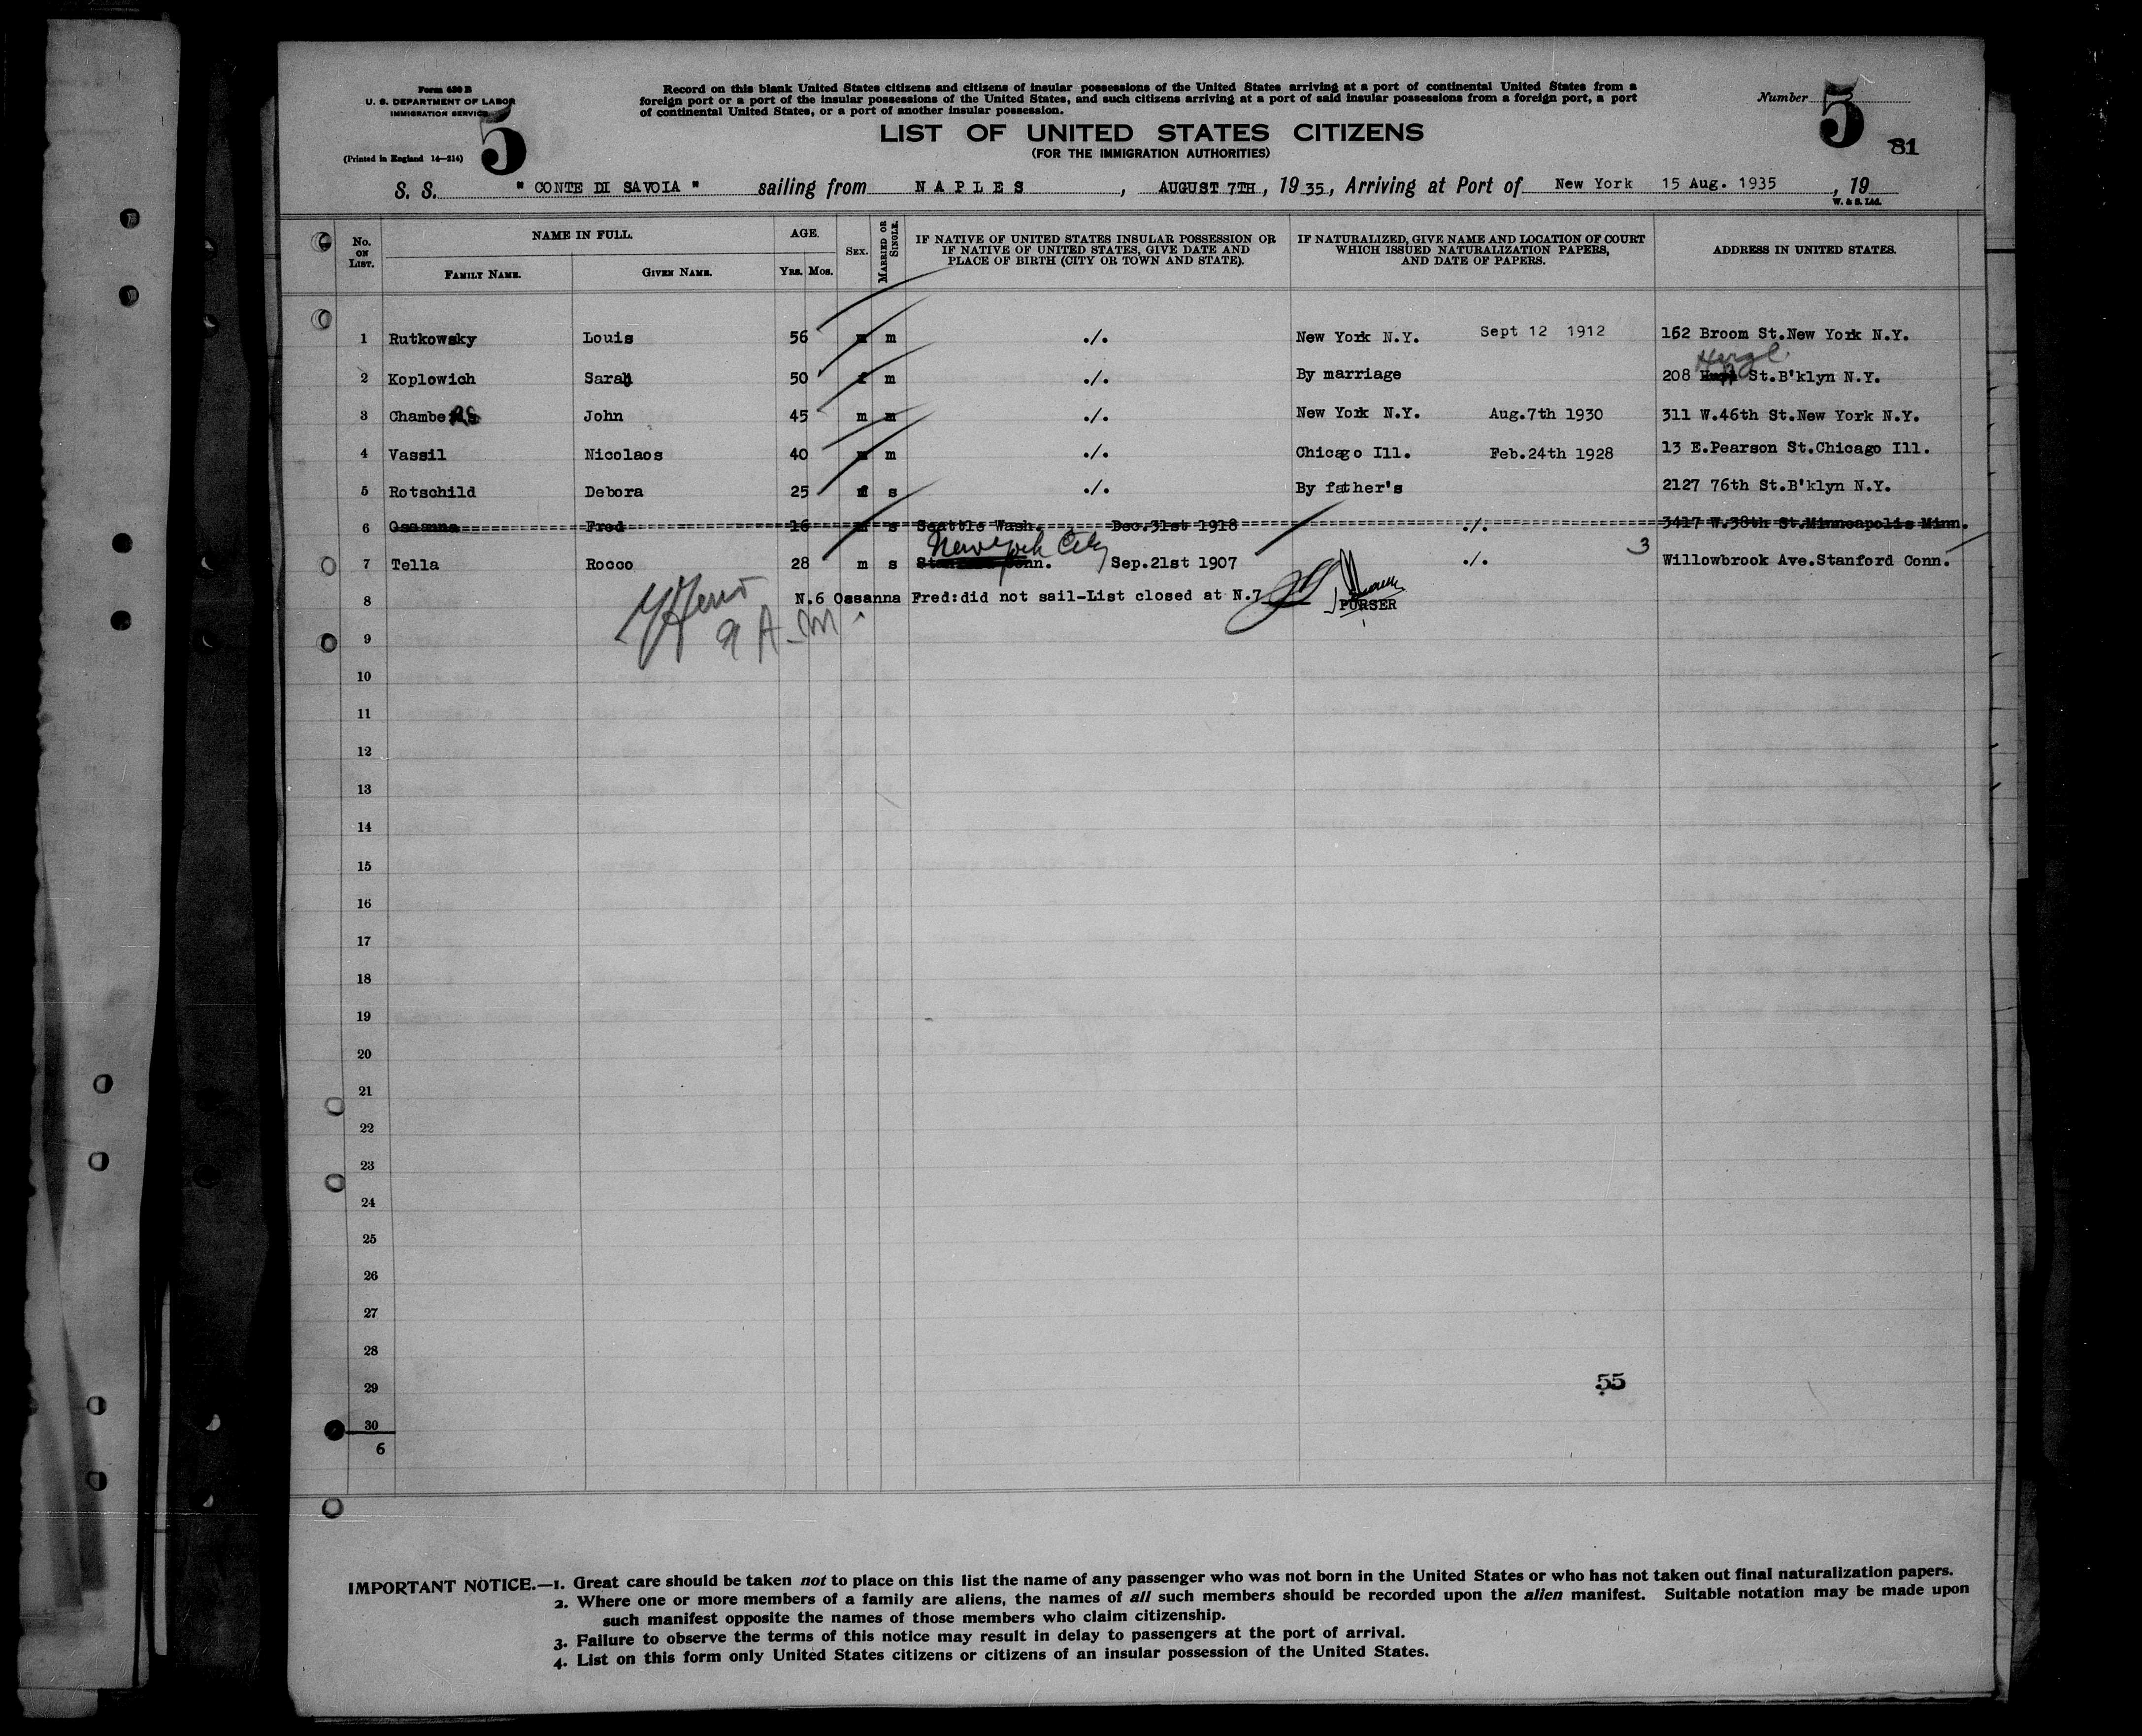 Form 630 B
U. S. DEPARTMENT OF LABOR
IMMIGRATION SERVICE
(Printed in England 14—214)
5
Record on this blank United States citizens and citizens of insular possessions of the United States arriving at a port of continental United States from a
foreign port or a port of the insular possessions of the United States, and such citizens arriving at a port of said insular possessions from a foreign port, a port
of continental United States, or a port of another insular possession.
Number 5
81
LIST OF UNITED STATES CITIZENS
(FOR THE IMMIGRATION AUTHORITIES)
S. S. " CONTE DI SAVOIA " sailing from NAPLES, AUGUST 7TH, 1935, Arriving at Port of New York 15 Aug. 1935, 19
W. & S. Ltd.
No. ON LIST. NAME IN FULL. AGE. SEX. MARRIED OR SINGLE. IF NATIVE OF UNITED STATES INSULAR POSSESSION OR IF NATIVE OF UNITED STATES, GIVE DATE AND PLACE OF BIRTH (CITY OR TOWN AND STATE). IF NATURALIZED, GIVE NAME AND LOCATION OF COURT WHICH ISSUED NATURALIZATION PAPERS, AND DATE OF PAPERS. ADDRESS IN UNITED STATES.
FAMILY NAME. GIVEN NAME. YRS. MOS.
1 Rutkowsky Louis 56 m m ./. New York N.Y. Sept 12 1912 162 Broom St.New York N.Y.
2 Koplowich Sarah 50 f m ./. By marriage 208 St.B'klyn N.Y.
3 Chambers John 45 m m ./. New York N.Y. Aug.7th 1930 311 W.46th St.New York N.Y.
4 Vassil Nicolaos 40 m m ./. Chicago Ill. Feb.24th 1928 13 E.Pearson St.Chicago Ill.
5 Rotschild Debora 25 f s ./. By father's 2127 76th St.B'klyn N.Y.
6 Ossanna Fred 16 m s Seattle Wash. Dec.31st 1918 ./. 3417 W.38th St.Minneapolis Minn.
New York City
3
7 Tella Rocco 28 m s Conn. Sep.21st 1907 ./. Willowbrook Ave.Stanford Conn.
8 N.6 Ossanna Fred:did not sail-List closed at N.7
PURSER
9 A.M.
9
10
11
12
13
14
15
16
17
18
19
20
21
22
23
24
25
26
27
28
29
55
30
6
IMPORTANT NOTICE.—1. Great care should be taken not to place on this list the name of any passenger who was not born in the United States or who has not taken out final naturalization papers.
2. Where one or more members of a family are aliens, the names of all such members should be recorded upon the alien manifest. Suitable notation may be made upon
such manifest opposite the names of those members who claim citizenship.
3. Failure to observe the terms of this notice may result in delay to passengers at the port of arrival.
4. List on this form only United States citizens or citizens of an insular possession of the United States.